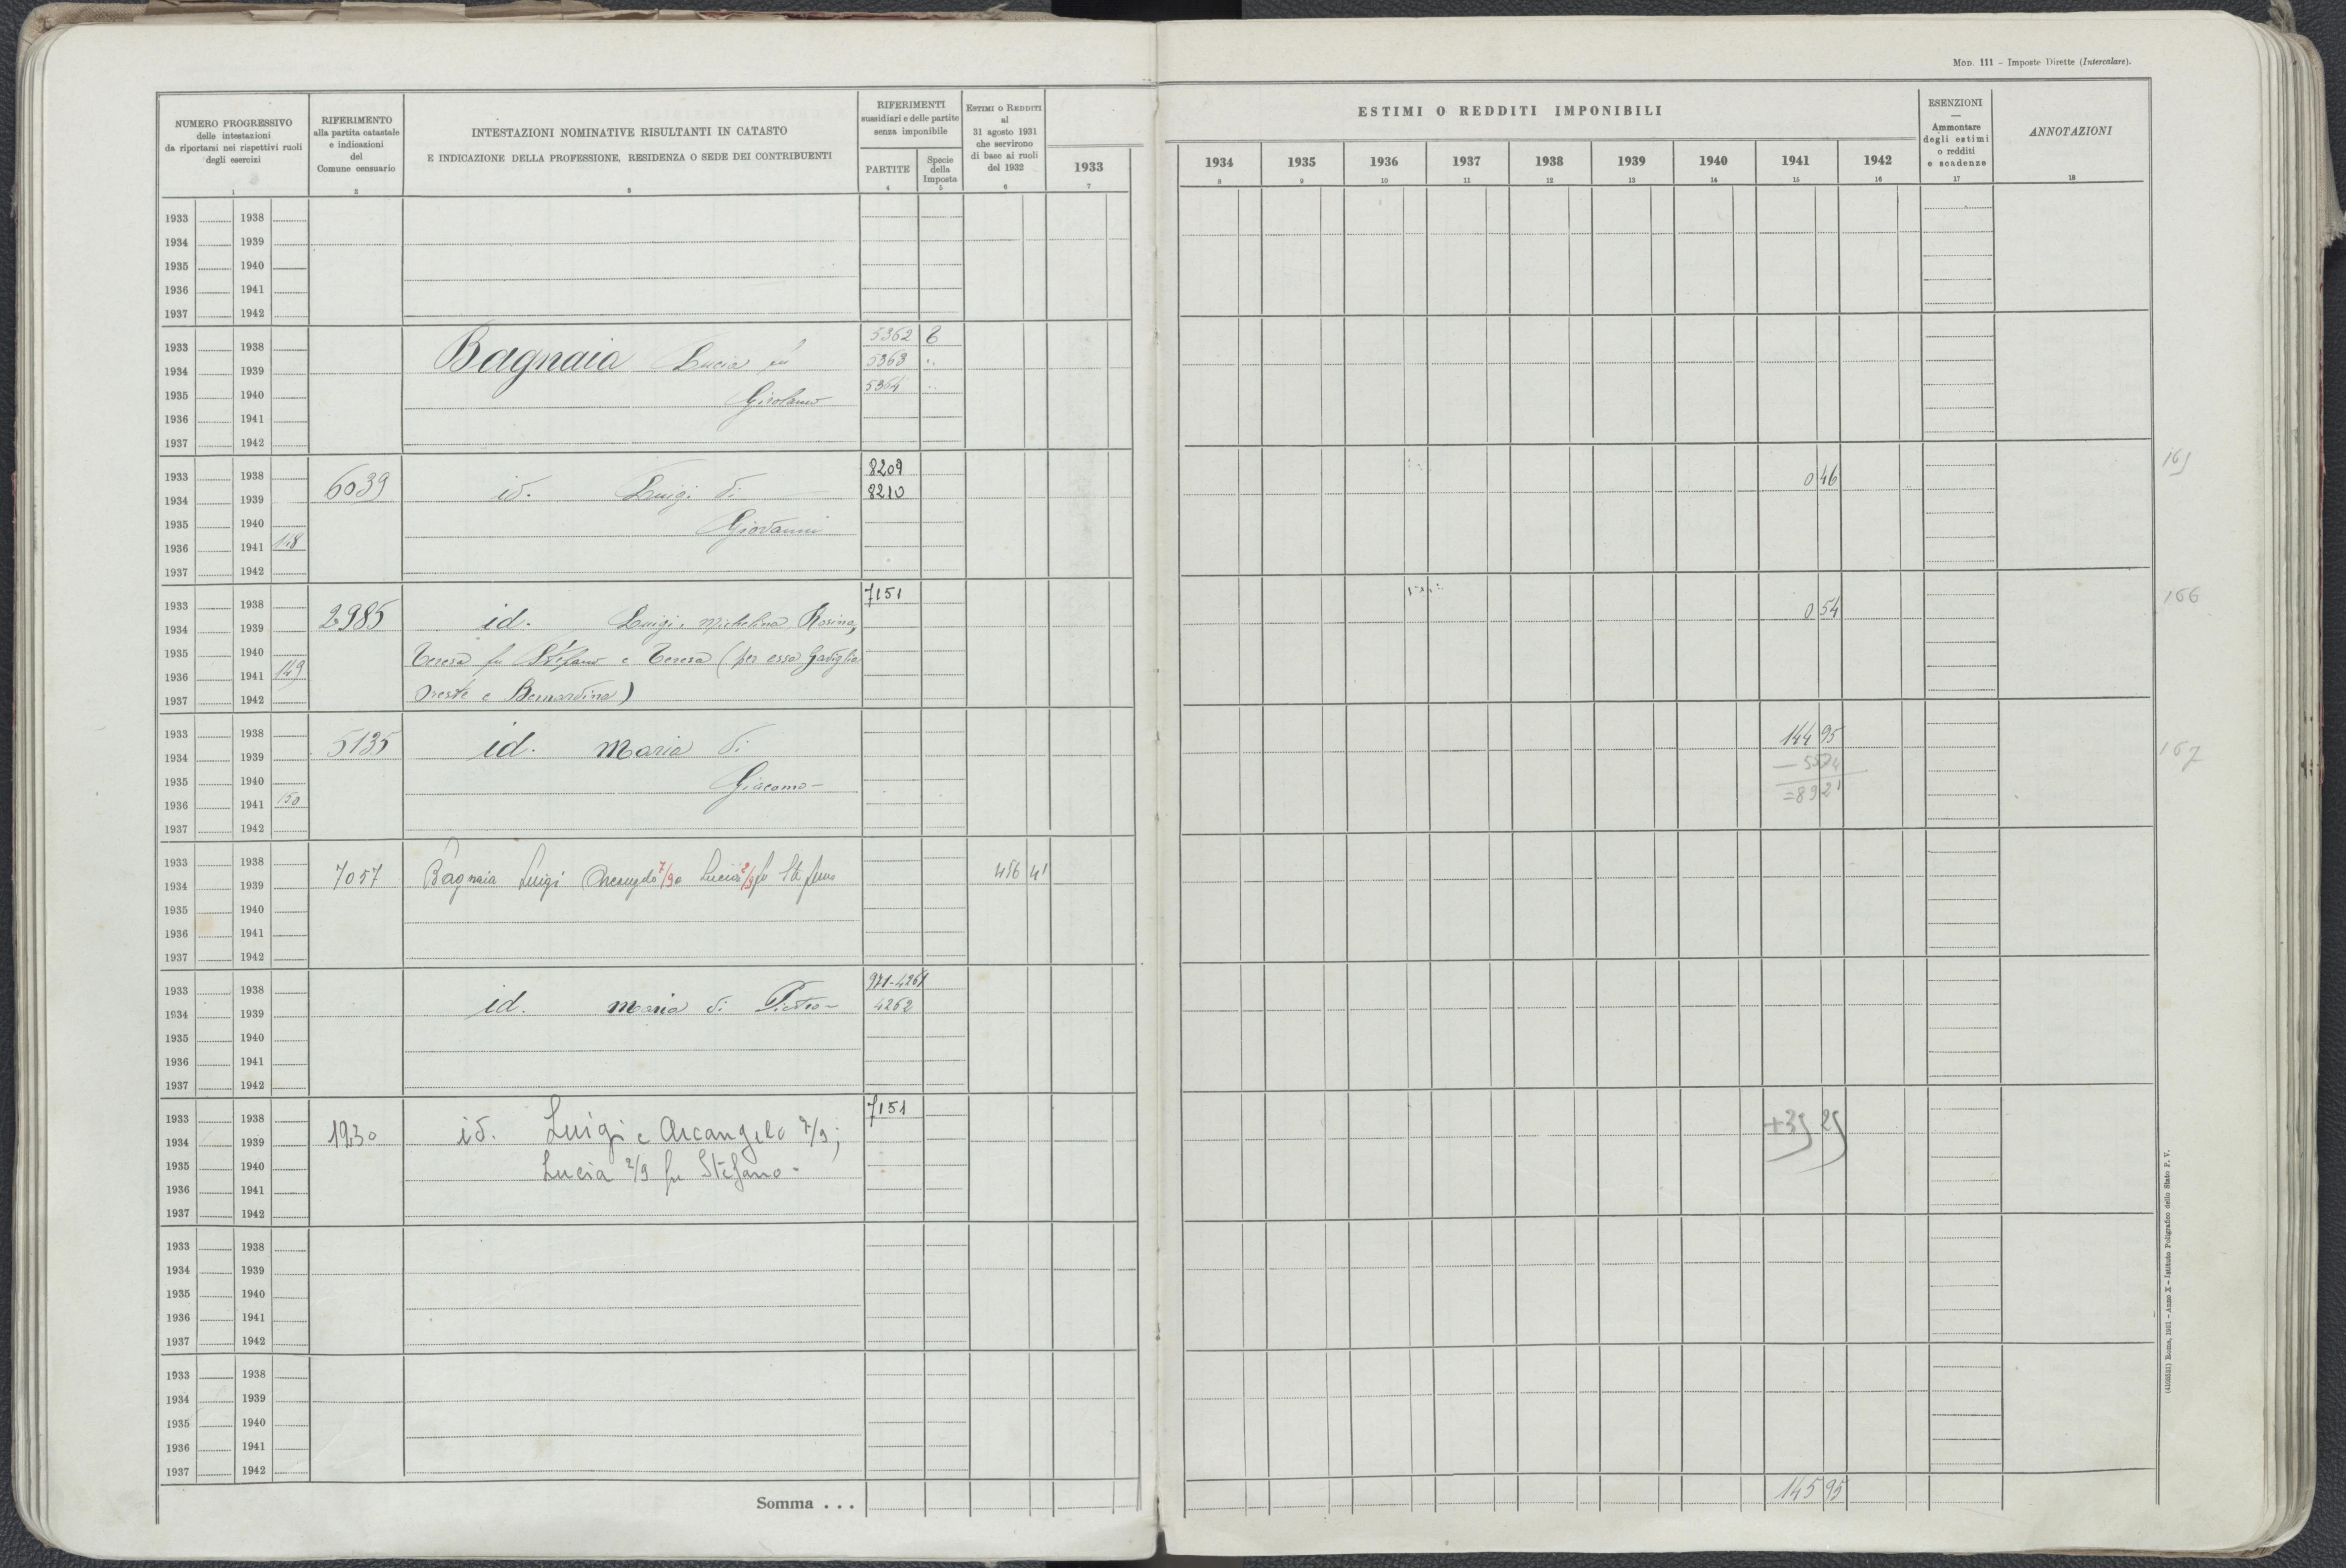 Mod. 111 - Imposte Dirette (Intercalare).
NUMERO PROGRESSIVO
delle intestazioni
da riportarsi nei rispettivi ruoli
degli esercizi
1
RIFERIMENTO
alla partita catastale
e indicazioni
del
Comune censuario
2
INTESTAZIONI NOMINATIVE RISULTANTI IN CATASTO
E INDICAZIONE DELLA PROFESSIONE, RESIDENZA O SEDE DEI CONTRIBUENTI
3
RIFERIMENTI
sussidiari e delle partite
senza imponibile
PARTITE
4
Specie
della
Imposta
5
ESTIMI O REDDITI
al
31 agosto 1931
che servirono
di base ai ruoli
del 1932
6
1933
7
ESTIMI O REDDITI IMPONIBILI
1934 1935 1936 1937 1938 1939 1940 1941 1942
8 9 10 11 12 13 14 15 16
ESENZIONI
—
Ammontare
degli estimi
o redditi
e scadenze
17
ANNOTAZIONI
18
1933 1938
1934 1939
1935 1940
1936 1941
1937 1942
5362
1933 1938
Bagnaia Lucia fu
5363 "
1934 1939
5364 "
1935 1940
Girolamo
1936 1941
1937 1942
8209
1933 1938
6039 id. Luigi di
8210
0 46
165
1934 1939
1935 1940
Giovanni
1936 1941 148
1937 1942
7151
1933 1938
2985 id. Luigi, Michelina, Rosina,
0 54
166
1934 1939
1935 1940
Teresa fu Stefano e Teresa (per essa Gaviglia
1936 1941 149
Oreste e Bernardina)
1937 1942
1933 1938
5135 id. Maria di
144 95
167
1934 1939
— 55 74
1935 1940
Giacomo -
= 89 21
1936 1941 150
1937 1942
1933 1938
7057 Bagnaia Luigi Arcangelo 7/9 e Lucia 2/9 fu Stefano
456 41
1934 1939
1935 1940
1936 1941
1937 1942
971-4261
1933 1938
id. Maria di Pietro -
4262
1934 1939
1935 1940
1936 1941
1937 1942
7151
1933 1938
1230 id. Luigi e Arcangelo 7/9;
+35 25
1934 1939
Lucia 2/9 fu Stefano -
1935 1940
1936 1941
1937 1942
1933 1938
1934 1939
1935 1940
1936 1941
1937 1942
1933 1938
1934 1939
1935 1940
1936 1941
1937 1942
Somma . . .
145 95
Roma, 1931 - Anno X - Istituto Poligrafico dello Stato P. V.